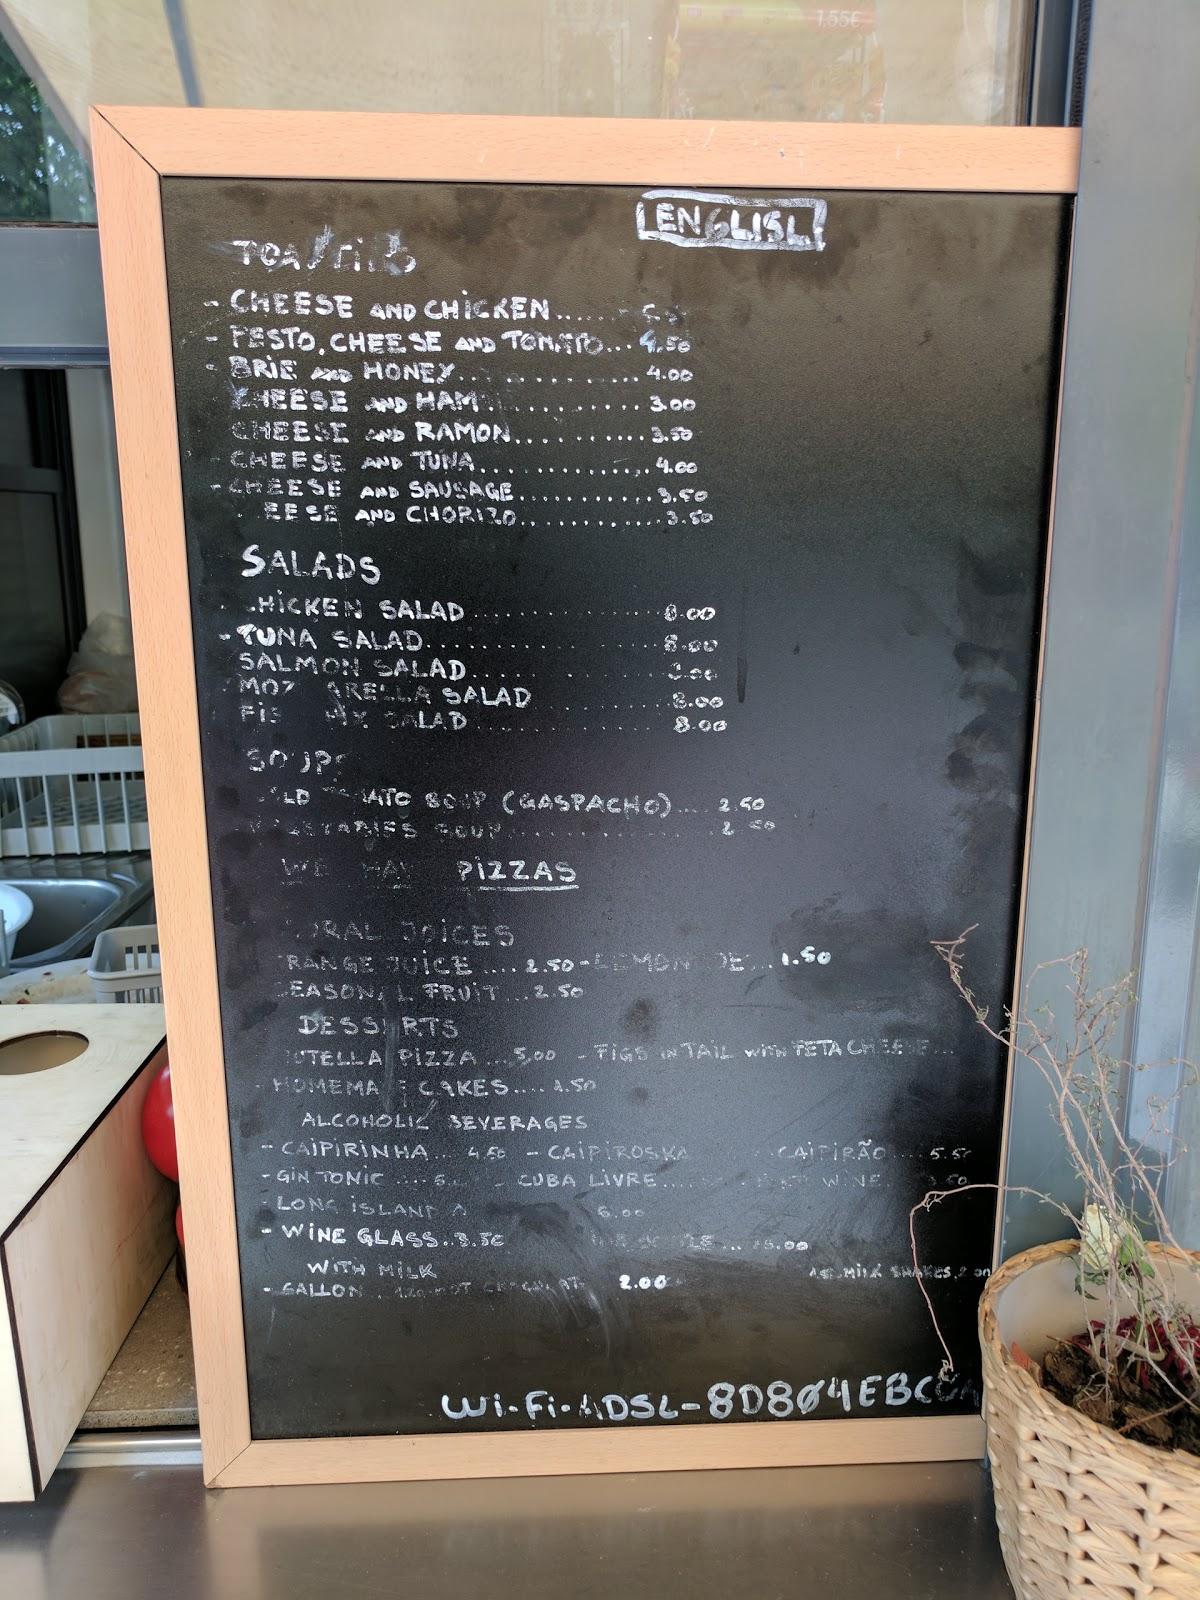 1.55€
ENGLISH
- CHEESE AND CHICKEN.......
- PESTO, CHEESE AND TOMATO... 4.50
- BRIE AND HONEY............... 4.00
CHEESE AND HAM............... 3.00
CHEESE AND RAMON............. 3.50
CHEESE AND TUNA............... 4.00
- CHEESE AND SAUSAGE............ 3.50
EESE AND CHORIZO............ 3.50
SALADS
HICKEN SALAD.................. 8.00
- TUNA SALAD.................... 8.00
SALMON SALAD..................
MOZ ARELLA SALAD............ 8.00
FIS MIX SALAD.................. 8.00
SOUPS
LD TOMATO SOUP (GASPACHO).... 2.50
SOUP.................. 2.50
WE HAV PIZZAS
URAL JUICES
RANGE JUICE .... 2.50 - LEMON DE... 1.50
SEASONAL FRUIT... 2.50
DESSERTS
NUTELLA PIZZA ... 5,00 - FIGS IN TAIL WITH FETA CHEESE...
HOMEMA E CAKES.... 2.50
ALCOHOLIC BEVERAGES
- CAIPIRINHA... 4.50 - CAIPIROSKA CAIPIRÃO.... 5.50
- GIN TONIC .... - CUBA LIVRE..... WINE. 3.50
LONG ISLAND 6.00
- WINE GLASS..3.50 ... 15.00
WITH MILK MILK SHAKES, 2.00
- GALLON. HOT 2.00
Wi-Fi-ADSL-8D804EBC